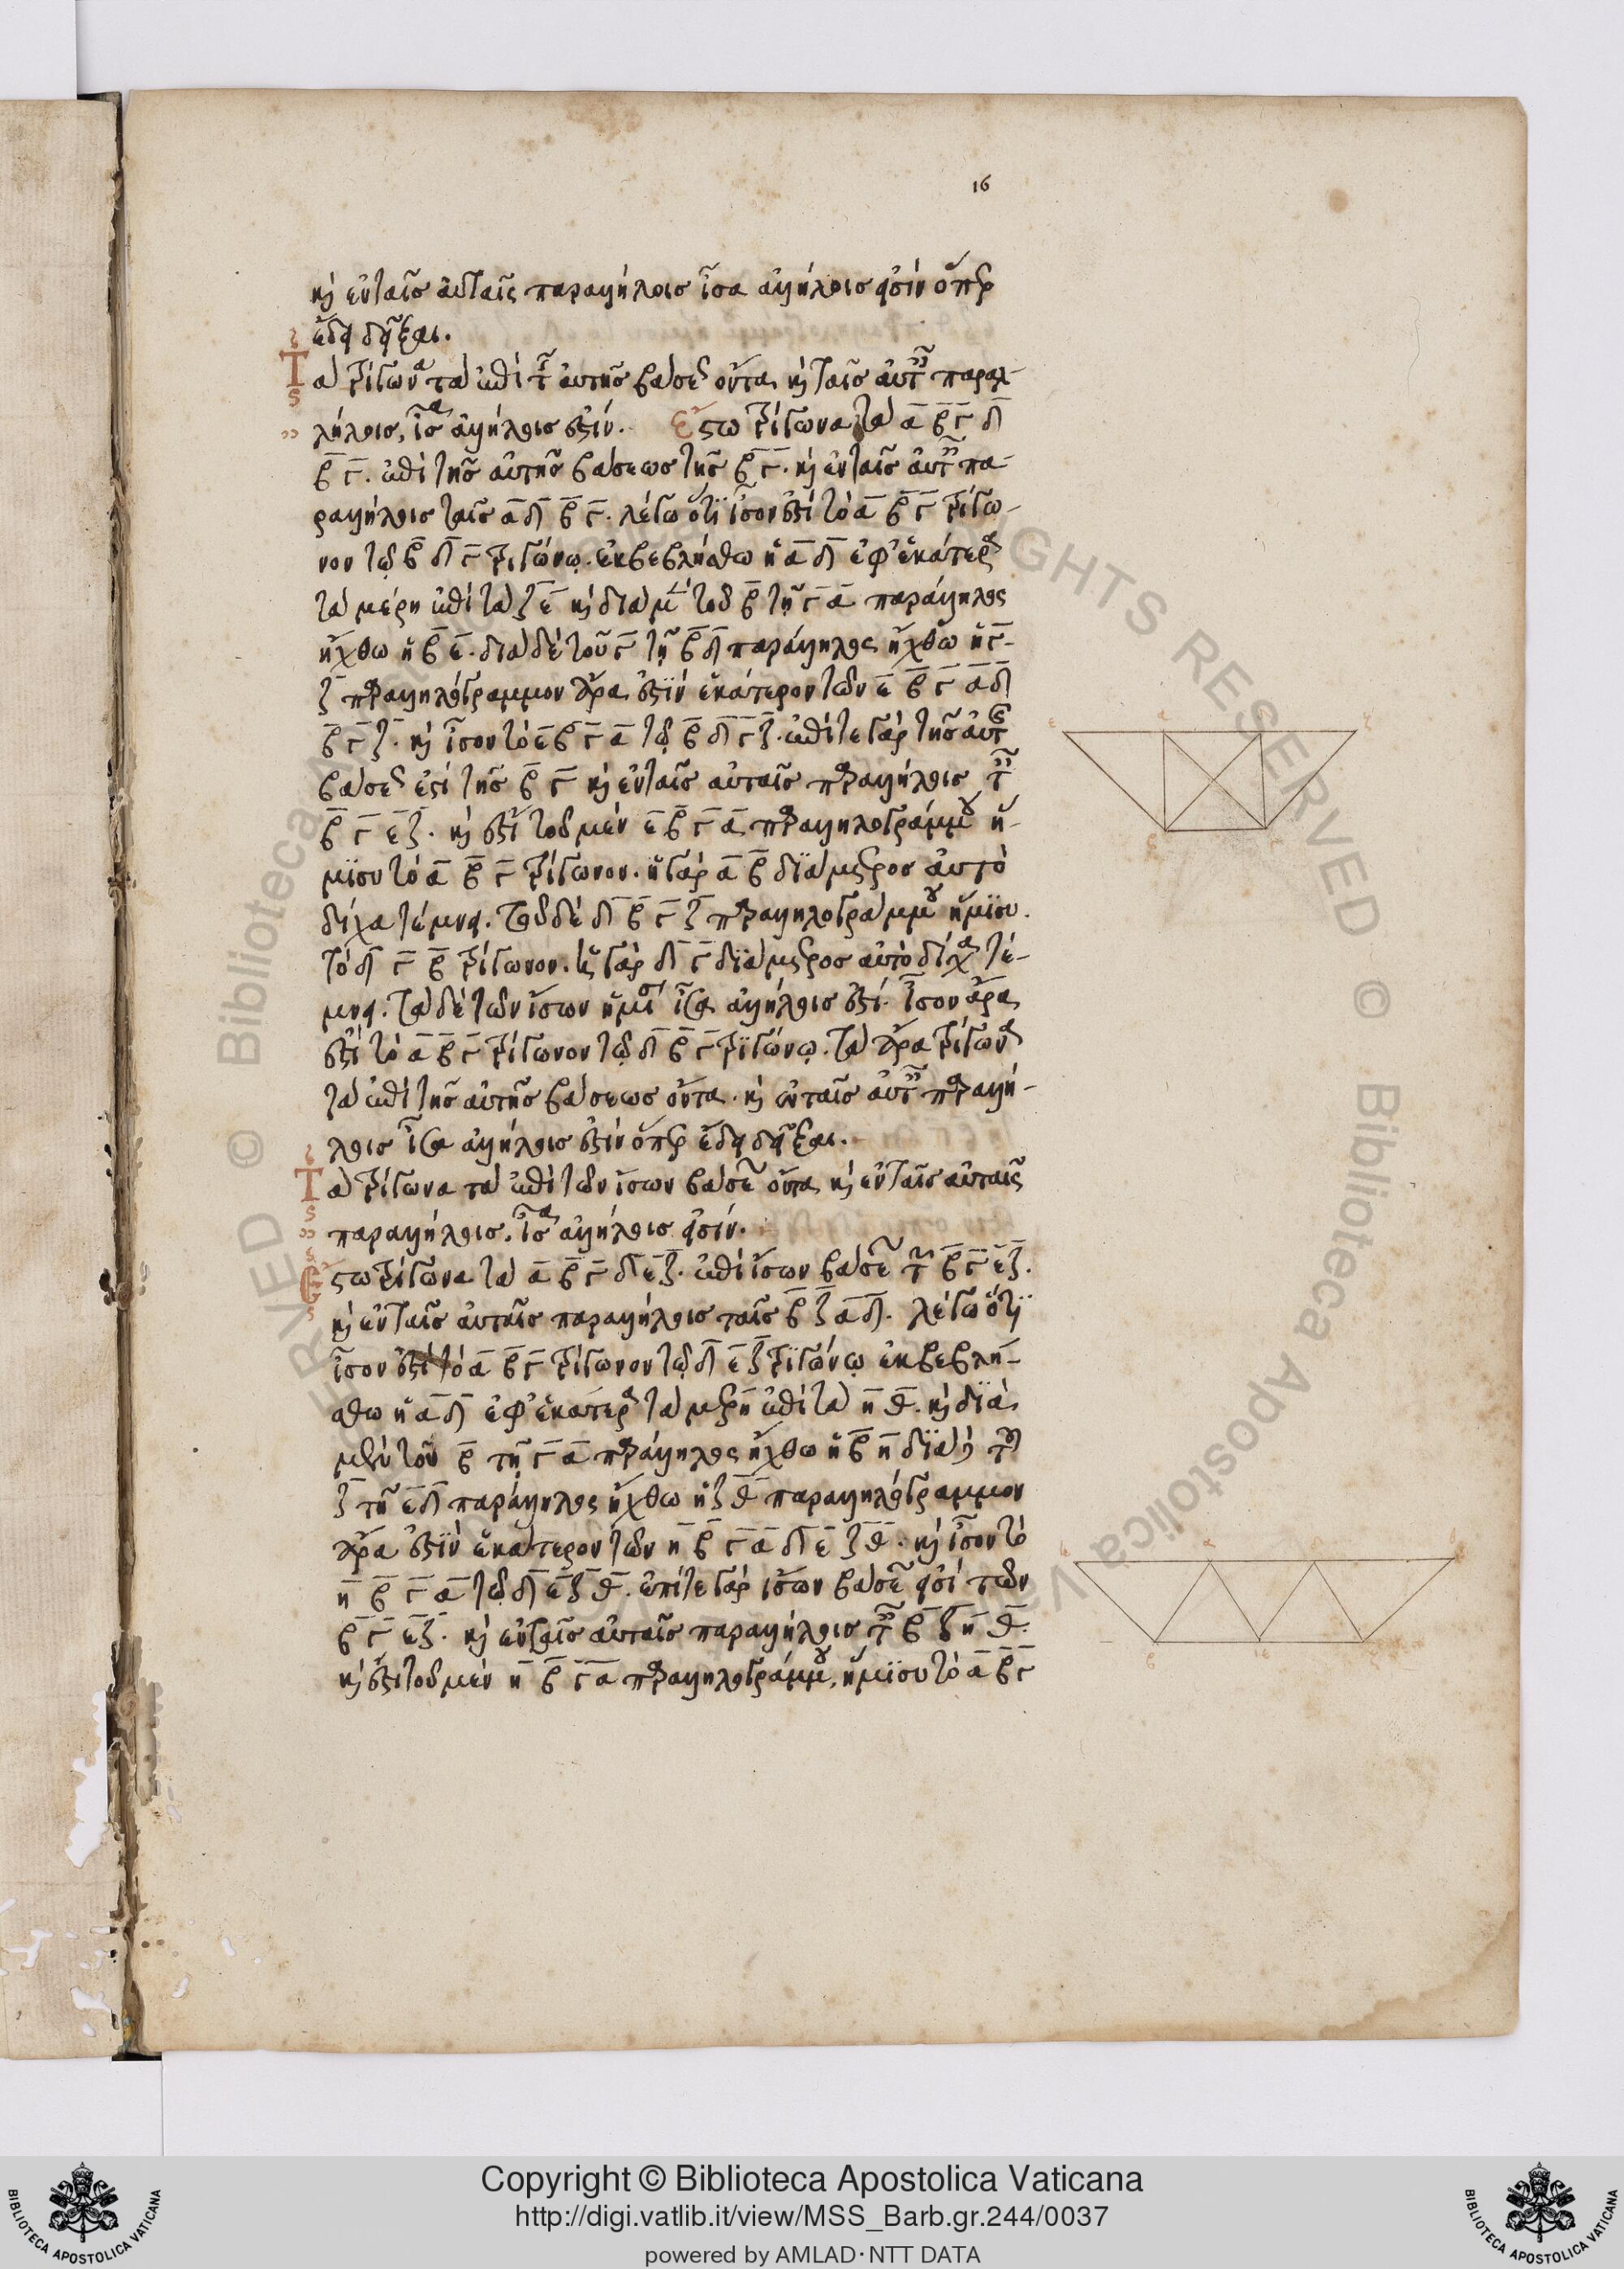 16
κὶ ἐν ταῖς αὐταῖς παραλλήλοις ἴσα ἀλλήλοις εἰσὶν ὅπερ
ἔδει δεῖξαι.
Τὰ τρίγωνα τὰ ἐπὶ τῆς αὐτῆς βάσεως ὄντα κὶ ταῖς αὐταῖς παραλ-
λήλοις, ἴσα ἀλλήλοις ἐστίν. Ἔστω τρίγωνα τὰ α β γ δ
β γ. ἐπὶ τῆς αὐτῆς βάσεως τῆς β γ. κὶ ἐν ταῖς αὐταῖς πα-
ραλλήλοις ταῖς α δ β γ. λέγω ὅτι ἴσον ἐστὶ τὸ α β γ τρίγω-
νον τῷ β δ γ τριγώνῳ. ἐκβεβλήσθω ἡ α δ ἐφ' ἑκάτερα
τὰ μέρη ἐπὶ τὰ ζ ε κὶ διὰ μὲν τοῦ β τῇ γ α παράλληλος
ἤχθω ἡ β ε. διὰ δὲ τοῦ γ τῇ β δ παράλληλος ἤχθω ἡ γ
ζ παραλληλόγραμμον ἄρα ἐστὶν ἑκάτερον τῶν ε β γ α δ
β γ ζ. κὶ ἴσον τὸ ε β γ α τῷ β δ γ ζ. ἐπί τε γὰρ τῆς αὐτῆς
βάσεώς εἰσι τῆς β γ κὶ ἐν ταῖς αὐταῖς παραλλήλοις ταῖς
β γ ε ζ. κὶ ἐστὶ τοῦ μὲν ε β γ α παραλληλογράμμου ἥ-
μισυ τὸ α β γ τρίγωνον. ἡ γὰρ α β διάμετρος αὐτὸ
δίχα τέμνει. τοῦ δὲ δ β γ ζ παραλληλογράμμου ἥμισυ.
τὸ δ γ β τρίγωνον. ἡ γὰρ δ γ διάμετρος αὐτὸ δίχα τέ-
μνει. τὰ δὲ τῶν ἴσων ἡμίση ἴσα ἀλλήλοις ἐστί. ἴσον ἄρα
ἐστὶ τὸ α β γ τρίγωνον τῷ δ β γ τριγώνῳ. τὰ ἄρα τρίγωνα
τὰ ἐπὶ τῆς αὐτῆς βάσεως ὄντα. κὶ ἐν ταῖς αὐταῖς παραλλή-
λοις ἴσα ἀλλήλοις ἐστὶν ὅπερ ἔδει δεῖξαι.
Τὰ τρίγωνα τὰ ἐπὶ τῶν ἴσων βάσεων ὄντα κὶ ἐν ταῖς αὐταῖς
παραλλήλοις. ἴσα ἀλλήλοις εἰσίν.
Ἔστω τρίγωνα τὰ α β γ δ ε ζ. ἐπὶ ἴσων βάσεων τῶν β γ ε ζ.
κὶ ἐν ταῖς αὐταῖς παραλλήλοις ταῖς β ζ α δ. λέγω ὅτι
ἴσον ἐστὶ τὸ α β γ τρίγωνον τῷ δ ε ζ τριγώνῳ ἐκβεβλή-
σθω ἡ α δ ἐφ' ἑκάτερα τὰ μέρη ἐπὶ τὰ η θ. κὶ διὰ
μὲν τοῦ β τῇ γ α παράλληλος ἤχθω ἡ β η διὰ δὲ τοῦ
ζ τῇ ε δ παράλληλος ἤχθω ἡ ζ θ παραλληλόγραμμον
ἄρα ἐστὶν ἑκάτερον τῶν η β γ α δ ε ζ θ. κὶ ἴσον τὸ
η β γ α τῷ δ ε ζ θ. ἐπί τε γὰρ ἴσων βάσεών εἰσι τῶν
β γ ε ζ. κὶ ἐν ταῖς αὐταῖς παραλλήλοις ταῖς β ζ η θ.
κὶ ἐστὶ τοῦ μὲν η β γ α παραλληλογράμμου, ἥμισυ τὸ α β γ
Copyright © Biblioteca Apostolica Vaticana
http://digi.vatlib.it/view/MSS_Barb.gr.244/0037
powered by AMLAD·NTT DATA